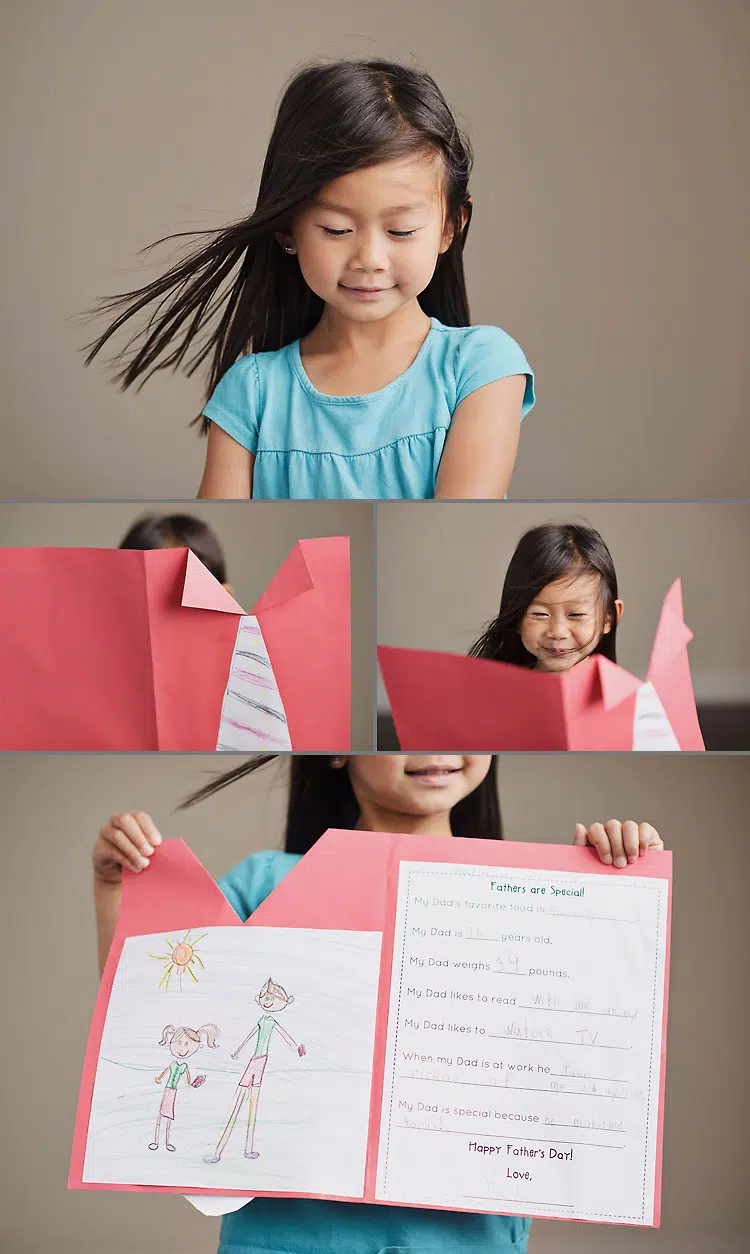 Fathers are Special!
My Dad's favorite food is
My Dad is 36 years old.
My Dad weighs 34 pounds.
My Dad likes to read with me at
My Dad likes to watch TV.
When my Dad is at work he takes
of me and
My Dad is special because he
Happy Father's Day!
Love,